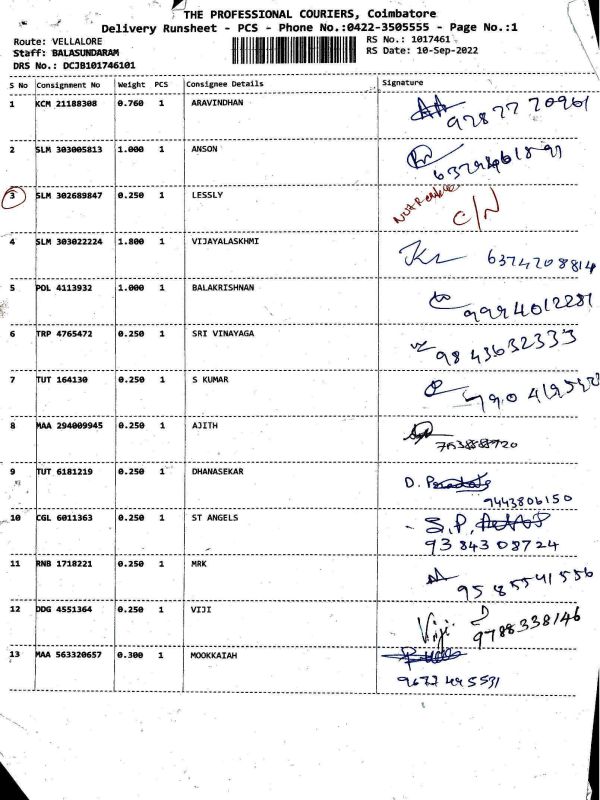 THE PROFESSIONAL COURIERS, Coimbatore
Delivery Runsheet - PCS - Phone No.:0422-3505555 - Page No.:1
Route: VELLALORE
RS No.: 1017461
Staff: BALASUNDARAM
RS Date: 10-Sep-2022
DRS No.: DCJB101746101
S No Consignment No Weight PCS Consignee Details Signature
1 KCM 21188308 0.760 1 ARAVINDHAN
9787770961
2 SLM 303005813 1.000 1 ANSON
3 SLM 302689847 0.250 1 LESSLY
C/N
4 SLM 303022224 1.800 1 VIJAYALASKHMI
6374708814
5 POL 4113932 1.000 1 BALAKRISHNAN
9994012281
6 TRP 4765472 0.250 1 SRI VINAYAGA
9843632333
7 TUT 164130 0.250 1 S KUMAR
8 MAA 294009945 0.250 1 AJITH
9 TUT 6181219 0.250 1 DHANASEKAR
D.
9443806150
10 CGL 6011363 0.250 1 ST ANGELS
S.P.
9384308724
11 RNB 1718221 0.250 1 MRK
9585541556
12 DDG 4551364 0.250 1 VIJI
Viji.
9788338146
13 MAA 563320657 0.300 1 MOOKKAIAH
9677495531